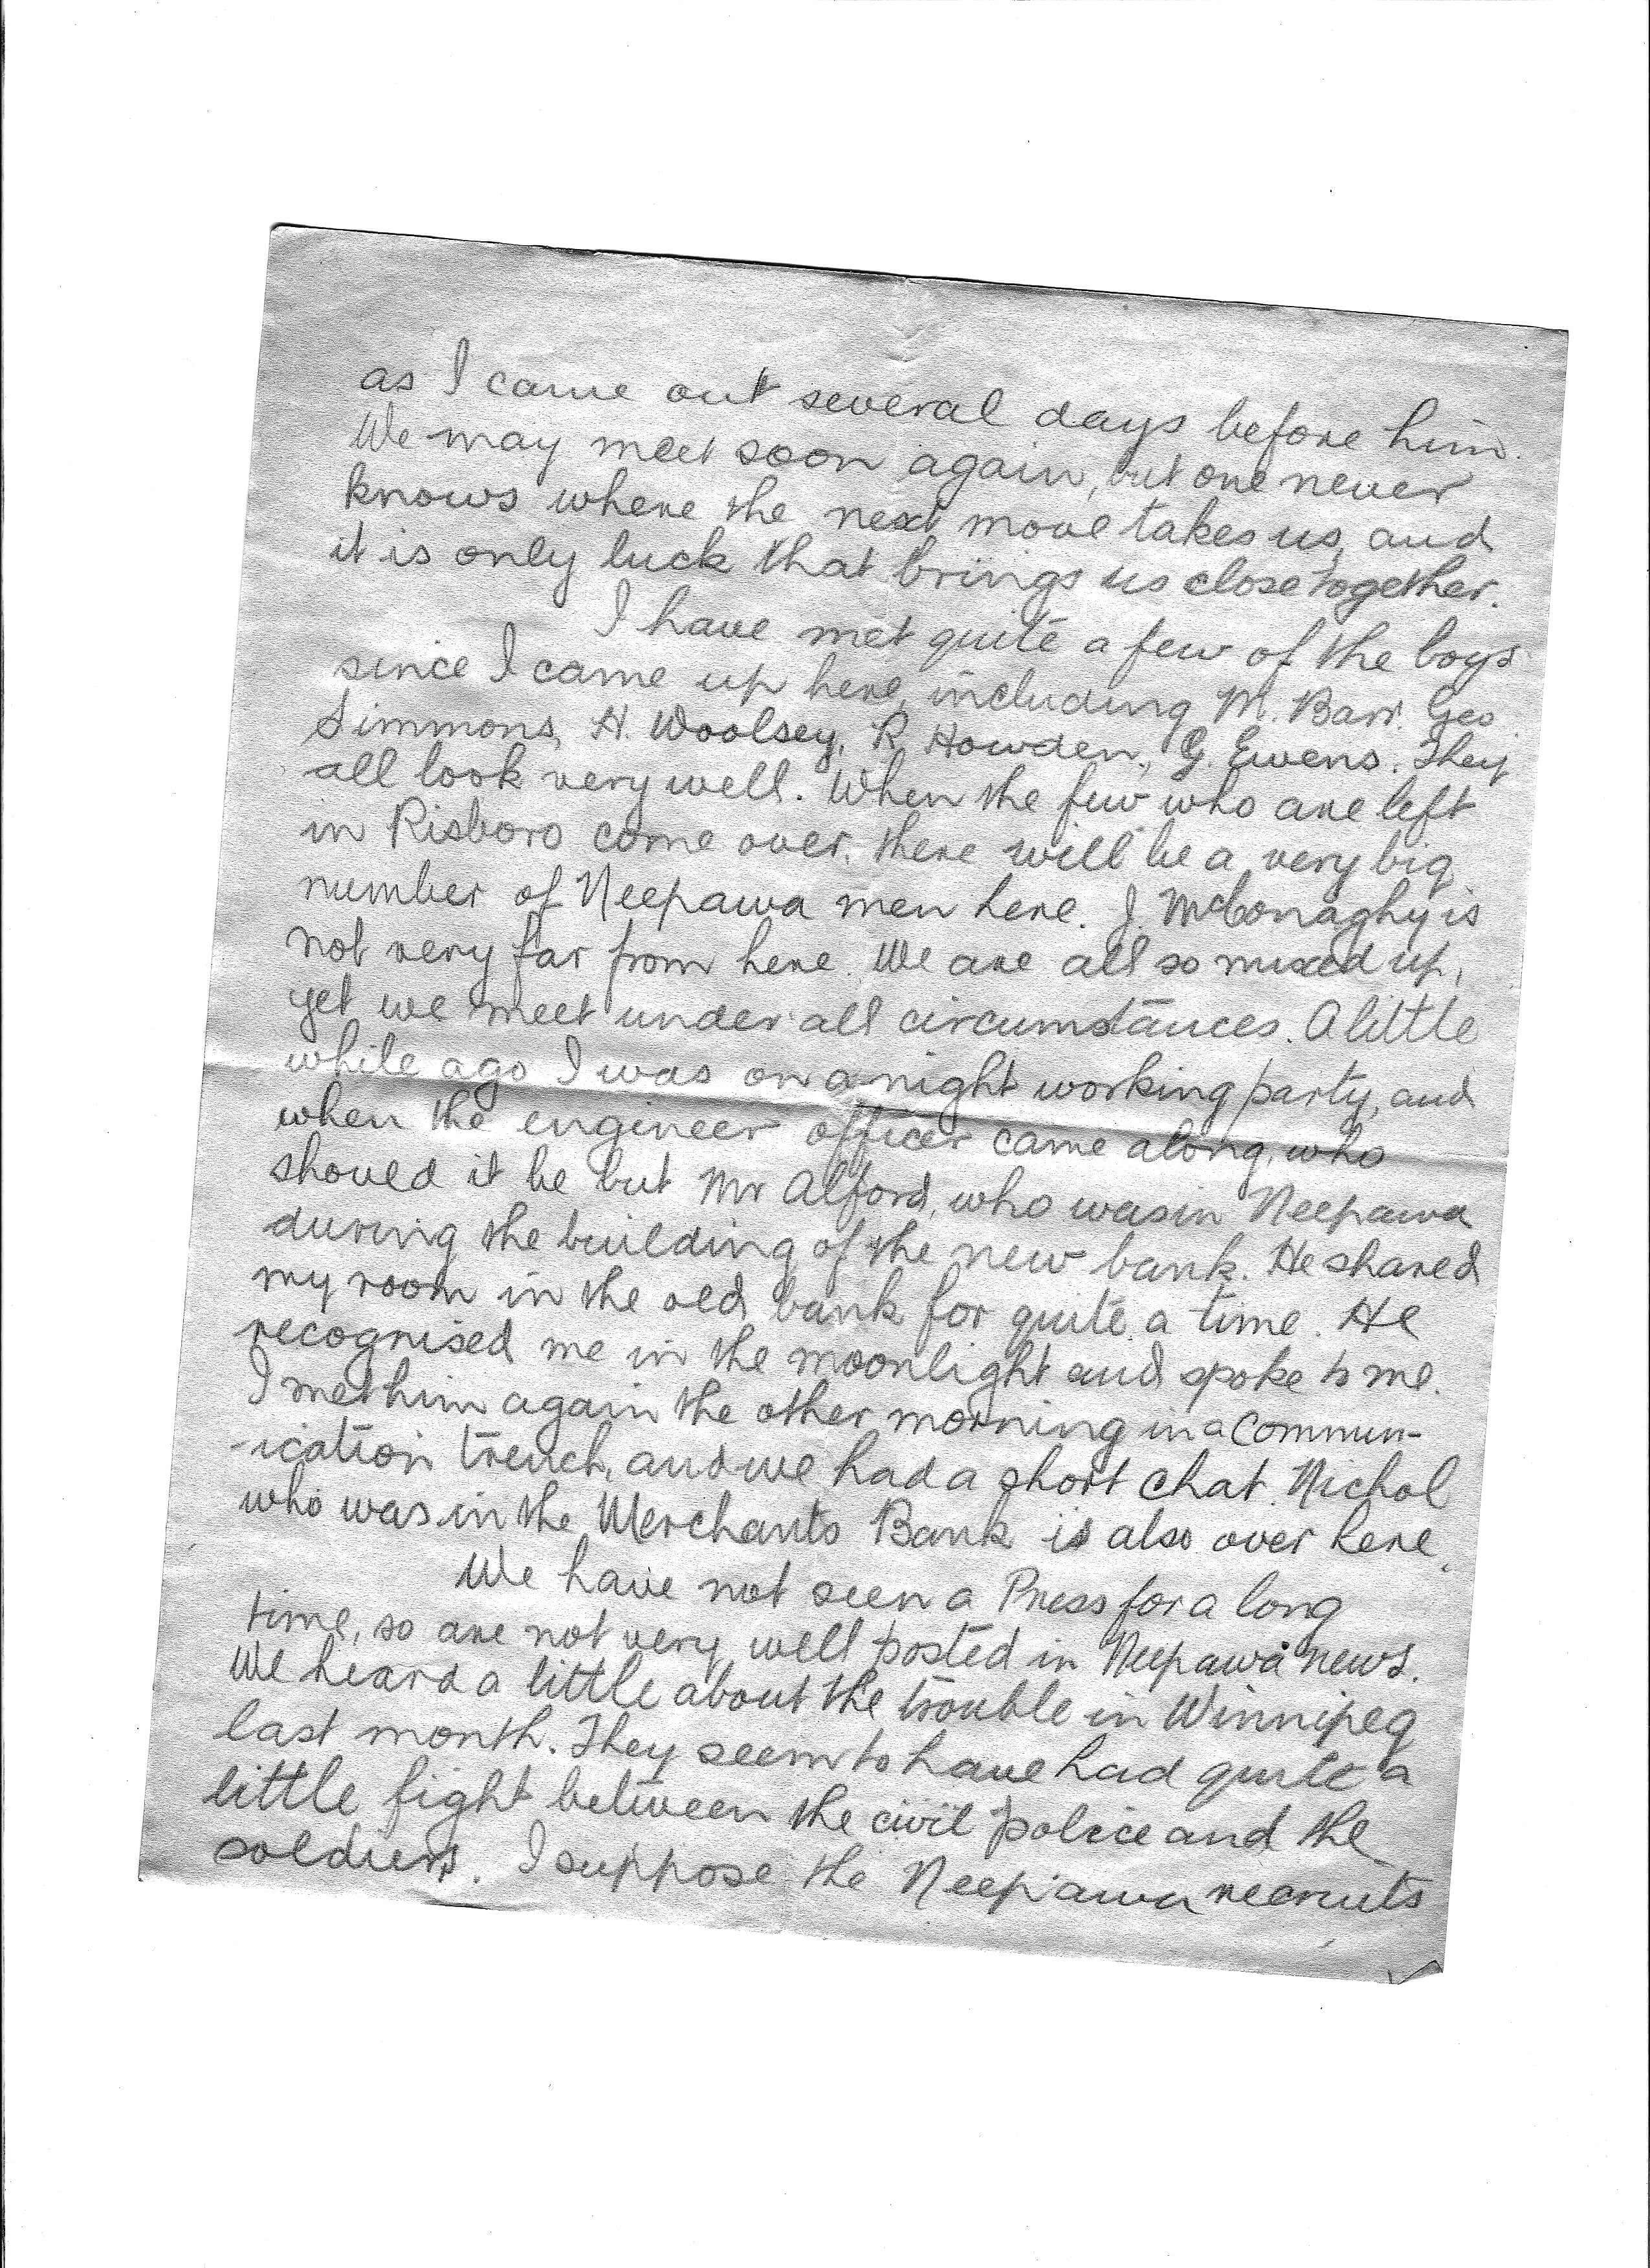 as I came out several days before him.
We may meet soon again, but one never
knows where the next move takes us, and
it is only luck that brings us close together.
I have met quite a few of the boys
since I came up here, including M. Barr. Geo
Simmons, H. Woolsey, R. Howden, G. Ewens. They
all look very well. When the few who are left
in Risboro come over, there will be a very big
number of Neepawa men here. J. McConaghy is
not very far from here. We are all so mixed up,
yet we meet under all circumstances. A little
while ago I was on a night working party, and
when the engineer officer came along, who
should it be but Mr Alford, who was in Neepawa
during the building of the new bank. He shared
my room in the old bank for quite a time. He
recognised me in the moonlight and spoke to me.
I met him again the other morning in a commun-
-ication trench, and we had a short chat. Nichol
who was in the Merchants Bank is also over here.
We have not seen a Press for a long
time, so are not very well posted in Neepawa news.
We heard a little about the trouble in Winnipeg
last month. They seem to have had quite a
little fight between the civil police and the
soldiers. I suppose the Neepawa recruits